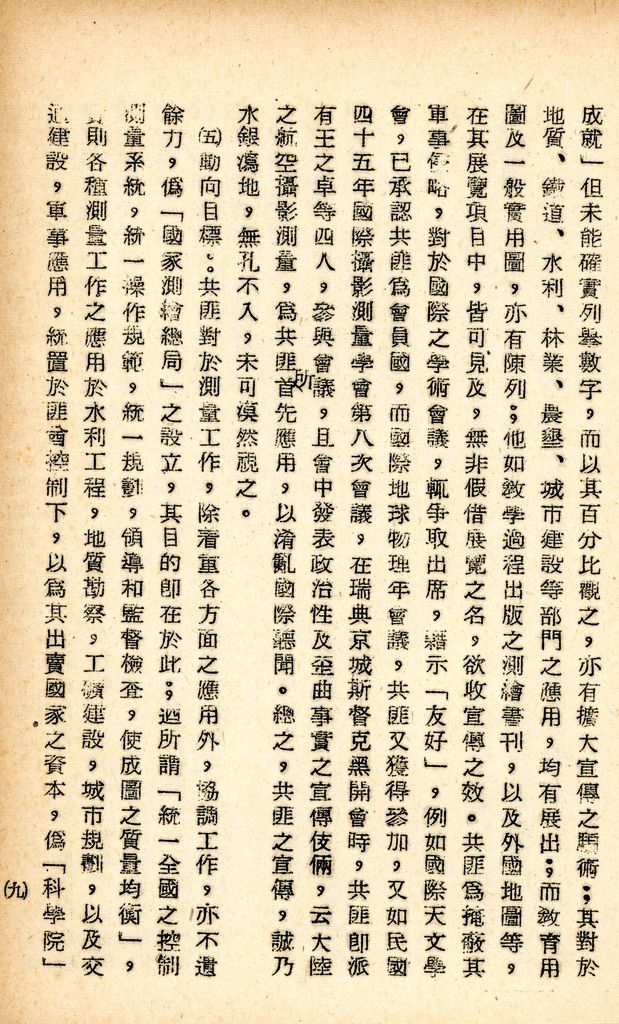 成就」但未能確實列舉數字，而以其百分比觀之，亦有擴大宣傳之騙術；其對於
地質、鐵道、水利、林業、農墾、城市建設等部門之應用，均有展出；而敎育用
圖及一般實用圖，亦有陳列；他如敎學過程出版之測繪書刊，以及外國地圖等，
在其展覽項目中，皆可見及，無非假借展覽之名，欲收宣傳之效。共匪爲掩蔽其
軍事侵略，對於國際之學術會議，輒爭取出席，藉示「友好」，例如國際天文學
會，已承認共匪爲會員國，而國際地球物理年會議，共匪又獲得參加，又如民國
四十五年國際攝影測量學會第八次會議，在瑞典京城斯督克黑開會時，共匪卽派
有王之卓等四人，參與會議，且會中發表政治性及歪曲事實之宣傳伎倆，云大陸
所
之航空攝影測量，爲共匪首先應用，以淆亂國際聽聞。總之，共匪之宣傳，誠乃
水銀瀉地，無孔不入，未可漠然視之。
㈤動向目標：共匪對於測量工作，除着重各方面之應用外，協調工作，亦不遺
餘力，僞「國家測繪總局」之設立，其目的卽在於此；迺所謂「統一全國之控制
測量系統，統一操作規範，統一規劃，領導和監督檢查，使成圖之質量均衡」，
則各種測量工作之應用於水利工程，地質勘察，工礦建設，城市規劃，以及交
通建設，軍事應用，統置於匪酋控制下，以爲其出賣國家之資本，僞「科學院」
㈨